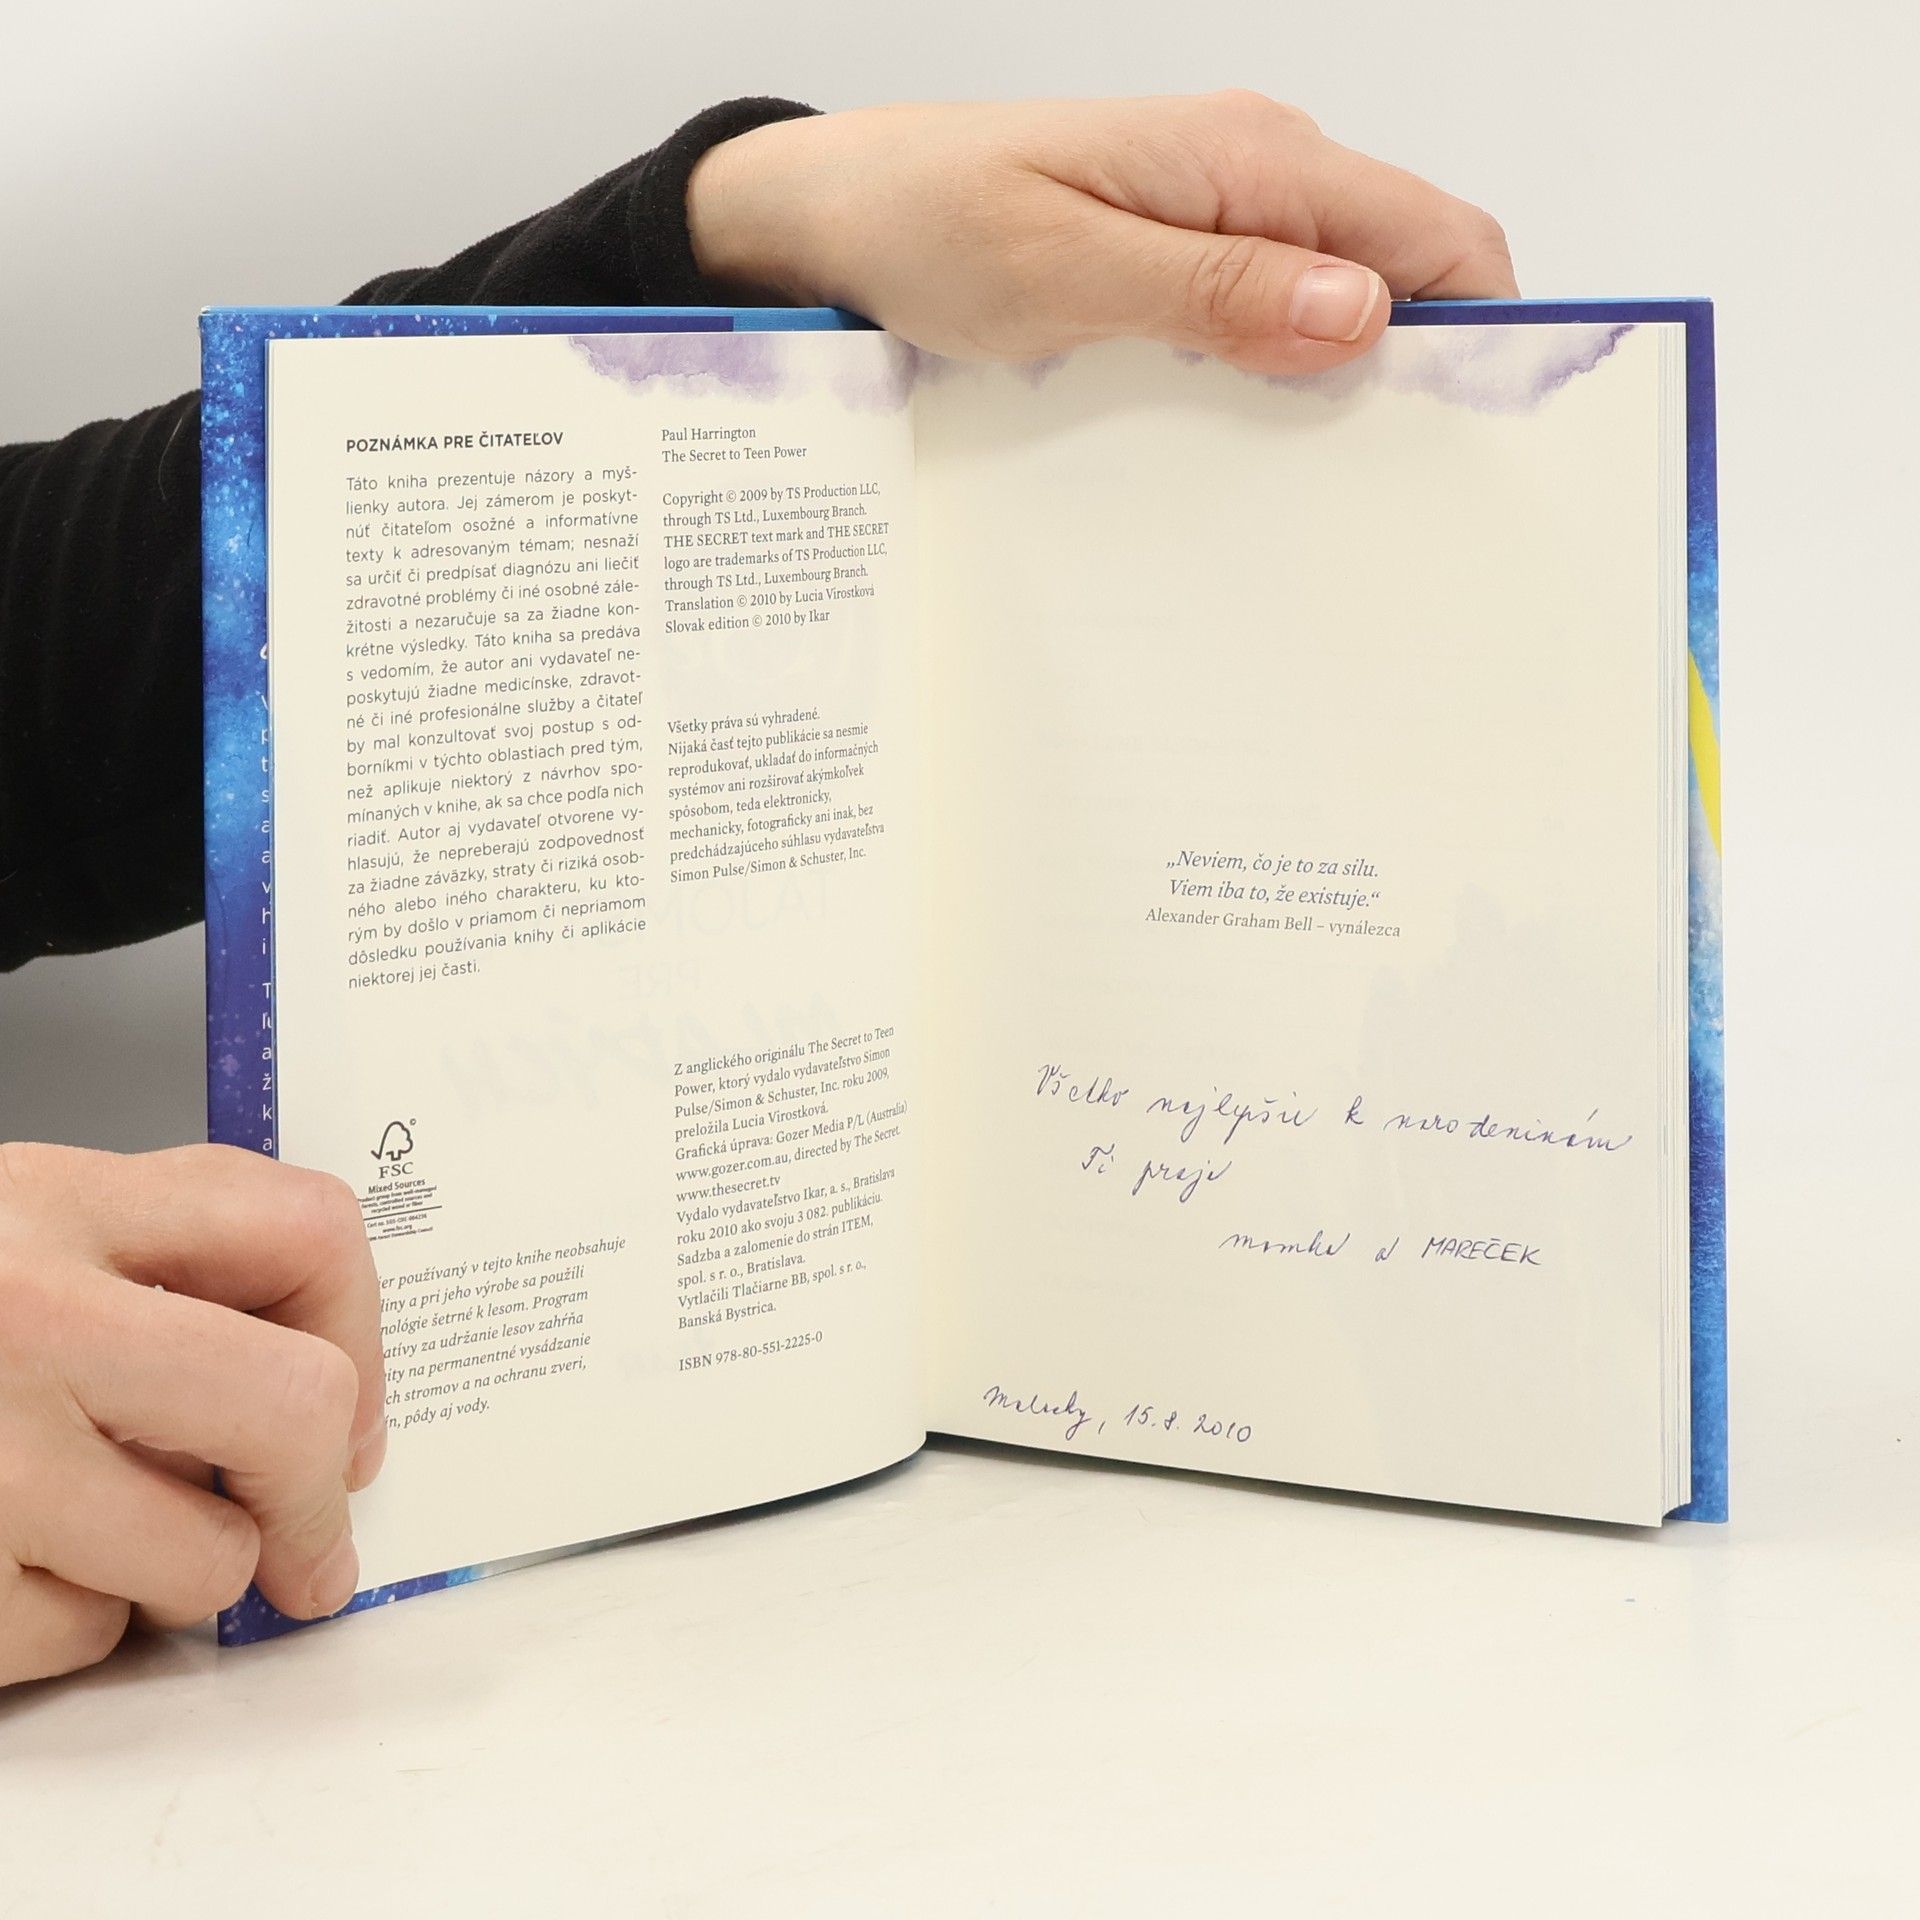 POZNÁMKA PRE ČITATEĽOV
Táto kniha prezentuje názory a myš-
lienky autora. Jej zámerom je poskyt-
núť čitateľom osožné a informatívne
texty k adresovaným témam; nesnaží
sa určiť či predpísať diagnózu ani liečiť
zdravotné problémy či iné osobné zále-
žitosti a nezaručuje sa za žiadne kon-
krétne výsledky. Táto kniha sa predáva
s vedomím, že autor ani vydavateľ ne-
poskytujú žiadne medicínske, zdravot-
né či iné profesionálne služby a čitateľ
by mal konzultovať svoj postup s od-
borníkmi v týchto oblastiach pred tým,
než aplikuje niektorý z návrhov spo-
mínaných v knihe, ak sa chce podľa nich
riadiť. Autor aj vydavateľ otvorene vy-
hlasujú, že nepreberajú zodpovednosť
za žiadne záväzky, straty či riziká osob-
ného alebo iného charakteru, ku kto-
rým by došlo v priamom či nepriamom
dôsledku používania knihy či aplikácie
niektorej jej časti.
FSC
Mixed Sources
Product group from well-managed
forests, controlled sources and
recycled wood or fiber
www.fsc.org
používaný v tejto knihe neobsahuje
a pri jeho výrobe sa použili
šetrné k lesom. Program
za udržanie lesov zahŕňa
na permanentné vysádzanie
stromov a na ochranu zveri,
pôdy aj vody.
Paul Harrington
The Secret to Teen Power
Copyright © 2009 by TS Production LLC,
through TS Ltd., Luxembourg Branch.
THE SECRET text mark and THE SECRET
logo are trademarks of TS Production LLC,
through TS Ltd., Luxembourg Branch.
Translation © 2010 by Lucia Virostková
Slovak edition © 2010 by Ikar
Všetky práva sú vyhradené.
Nijaká časť tejto publikácie sa nesmie
reprodukovať, ukladať do informačných
systémov ani rozširovať akýmkoľvek
spôsobom, teda elektronicky,
mechanicky, fotograficky ani inak, bez
predchádzajúceho súhlasu vydavateľstva
Simon Pulse/Simon & Schuster, Inc.
Z anglického originálu The Secret to Teen
Power, ktorý vydalo vydavateľstvo Simon
Pulse/Simon & Schuster, Inc. roku 2009,
preložila Lucia Virostková.
Grafická úprava: Gozer Media P/L (Australia)
www.gozer.com.au, directed by The Secret
www.thesecret.tv
Vydalo vydavateľstvo Ikar, a. s., Bratislava
roku 2010 ako svoju 3 082. publikáciu.
Sadzba a zalomenie do strán ITEM,
spol. s r. o., Bratislava.
Vytlačili Tlačiarne BB, spol. s r. o.,
Banská Bystrica.
ISBN 978-80-551-2225-0
„Neviem, čo je to za silu.
Viem iba to, že existuje.“
Alexander Graham Bell – vynálezca
Všetko najlepšie k narodeninám
Ti praje
mamka a MAREČEK
Malacky, 15.8.2010